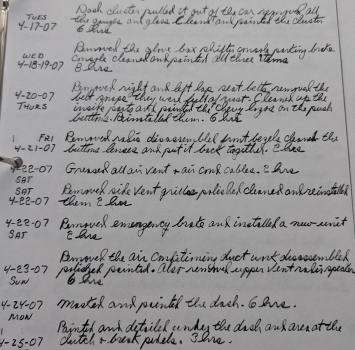 TUES Dash cluster pulled it out of the car removed all
4-17-07 the gauges and glass cleaned and painted the cluster
6 hrs
WED Removed the glove box shifter console parking brake
4-18+19-07 console cleaned and painted all three items
8 hrs
Removed right and left lap seat belts, removed the
4-20-07 belt they were full of rust. Cleaned up the
THURS inside parts and painted the Chevy logos on the push
buttons. Reinstalled them. 6 hrs
FRI Removed radio disassembled front bezels cleaned the
4-21-07 buttons lenses and put it back together. 2 hrs
4-22-07 Greased all air vent + air cond cables. 2 hrs
SAT
SAT Removed side vent grilles polished cleaned and reinstalled
4-22-07 them 2 hrs
4-22-07 Removed emergency brake and installed a new unit
SAT 2 hrs
Removed the air Conditioning duct work disassembled
4-23-07 painted. Also removed upper vent radio speaker
SUN 6 hrs
4-24-07 Masked and painted the dash. 6 hrs.
MON
Painted and detailed under the dash and area at the
4-25-07 clutch + break pedals. 3 hrs.